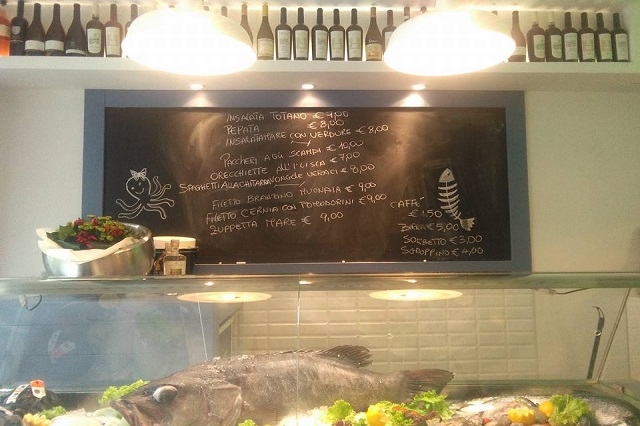 INSALATA TOTANO € 7,00
PEPATA € 8,00
INSALATA MARE CON VERDURE € 8,00
PACCHERI AGLI SCAMPI € 10,00
ORECCHIETTE ALL'I sca € 7,00
SPAGHETTI ALLA CHITARRA VONGOLE VERACI € 8,00
FILETTO BRANZINO MUGNAIA € 9,00
FILETTO CERNIA CON POMODORINI € 9,00
ZUPPETTA MARE € 9,00
CAFFÈ € 1,50
€ 5,00
SORBETTO € 3,00
SGROPPINO € 4,00